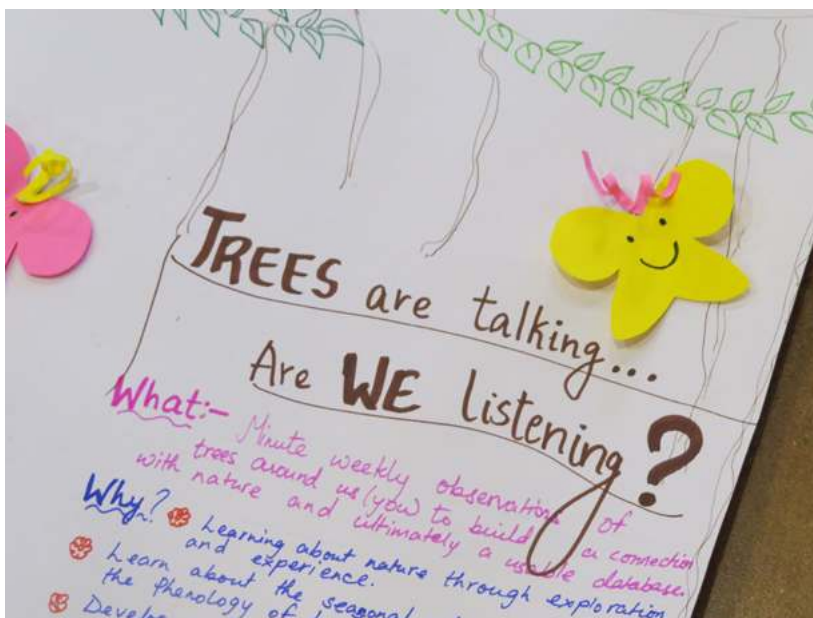 TREES are talking...
Are WE listening?
What:- Minute weekly observations of
trees around us (you) to build a connection
with nature and ultimately a usable database.
Why? Learning about nature through exploration
and experience.
Learn about the seasonal
the Phenology of
Develop